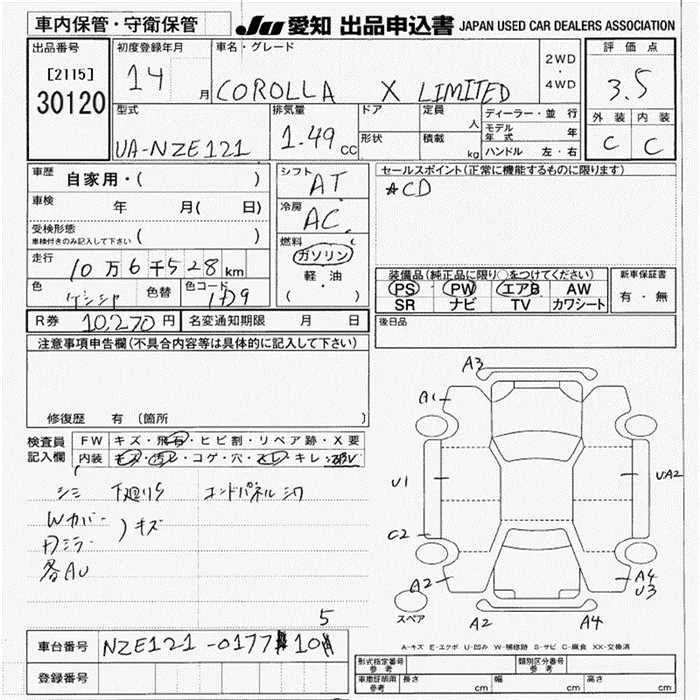 車内保管・守衛保管
JU 愛知 出品申込書 JAPAN USED CAR DEALERS ASSOCIATION
出品番号
[2115]
30120
初度登録年月
14 月
車名・グレード
COROLLA X LIMITED
2WD
・
4WD
評価点
3.5
外装 内装
C C
型式
UA-NZE121
排気量
1.49 cc
ドア
形状
定員
人
積載
kg
ディーラー・並行
モデル年式 年
ハンドル 左・右
車歴 自家用・( )
車検 年 月( 日)
受検形態
車検付きのみ記入して下さい ( )
走行 10万6千528km
色 色替 色コード 1D9
シフト
AT
冷房
AC
燃料
ガソリン
軽・油
( )
セールスポイント(正常に機能するものに限ります)
*CD
装備品(純正品に限り○をつけてください)
PS PW エアB AW
SR ナビ TV カワシート
新車保証書
有・無
後日品
R券 10,270円 名変通知期限 月 日
注意事項申告欄(不具合内容等は具体的に記入して下さい)
修復歴 有(箇所 )
検査員記入欄
FW キズ・飛石・ヒビ割・リペア跡・X要
内装 キズ・汚レ・コゲ・穴・スレ・キレ・
シミ 下廻りS エンドパネルシワ
Wカバー
Dミラー )キズ
各AU
A3
A1
U1
UA2
C2
A2
A4
U3
スペア
A2
A4
A-キズ E-エクボ U-凹み W-補修跡 S-サビ C-腐食 XX-交換済
5
車台番号 NZE121-0177 10
登録番号
形式指定番号 参考
類別区分番号 参考
車庫証明用 参考 長さ cm 幅 cm 高さ cm